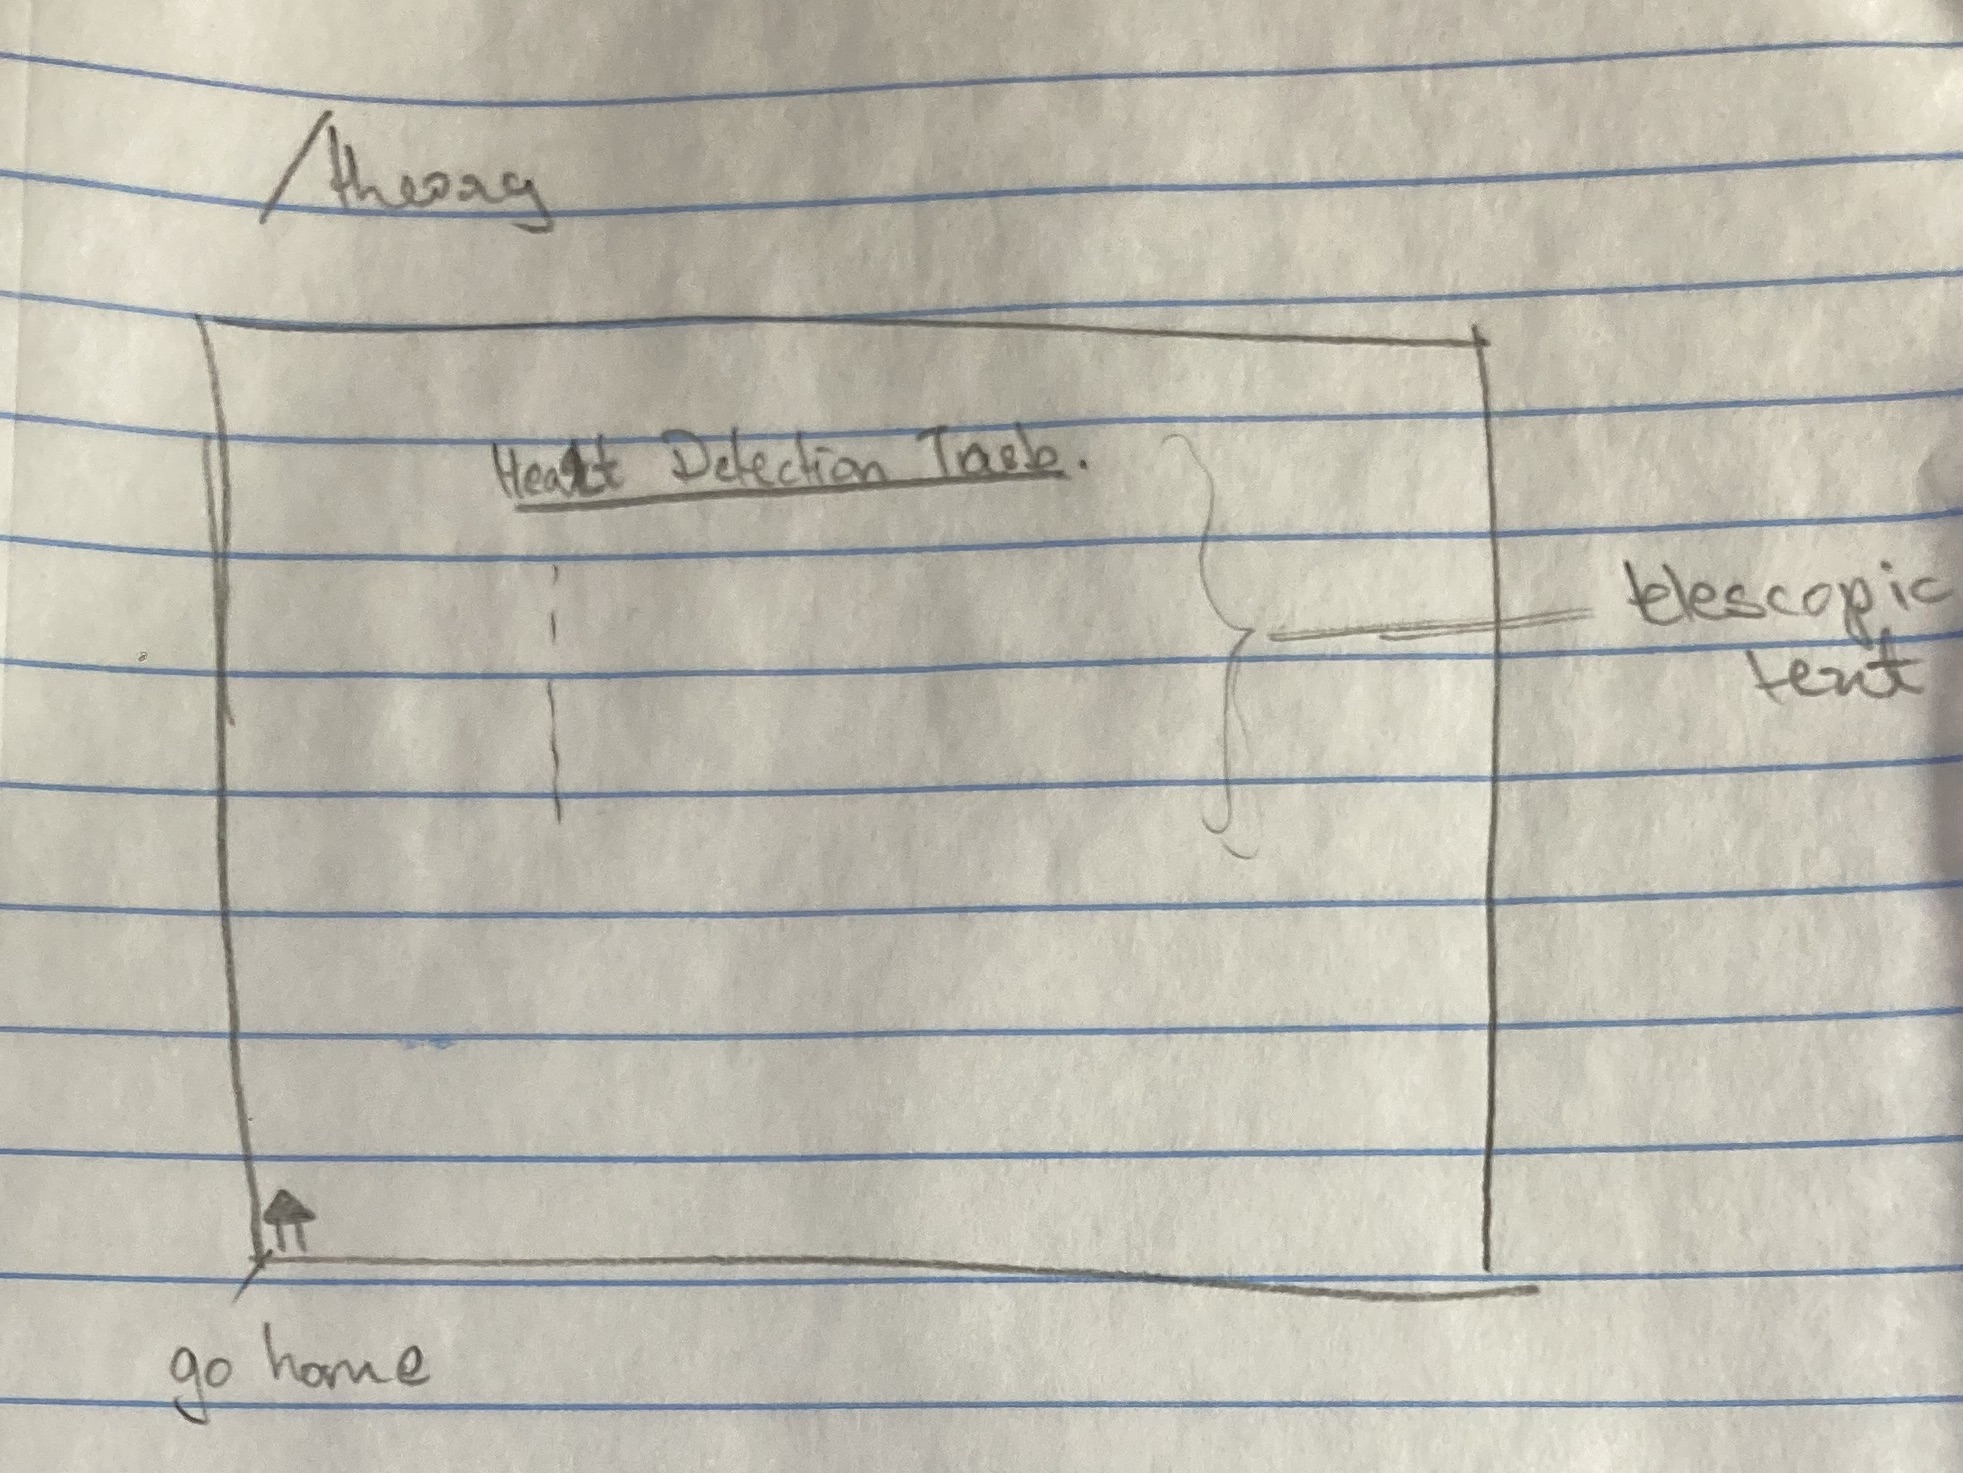 /theory
Heart Detection Task.
telescopic
text
go home